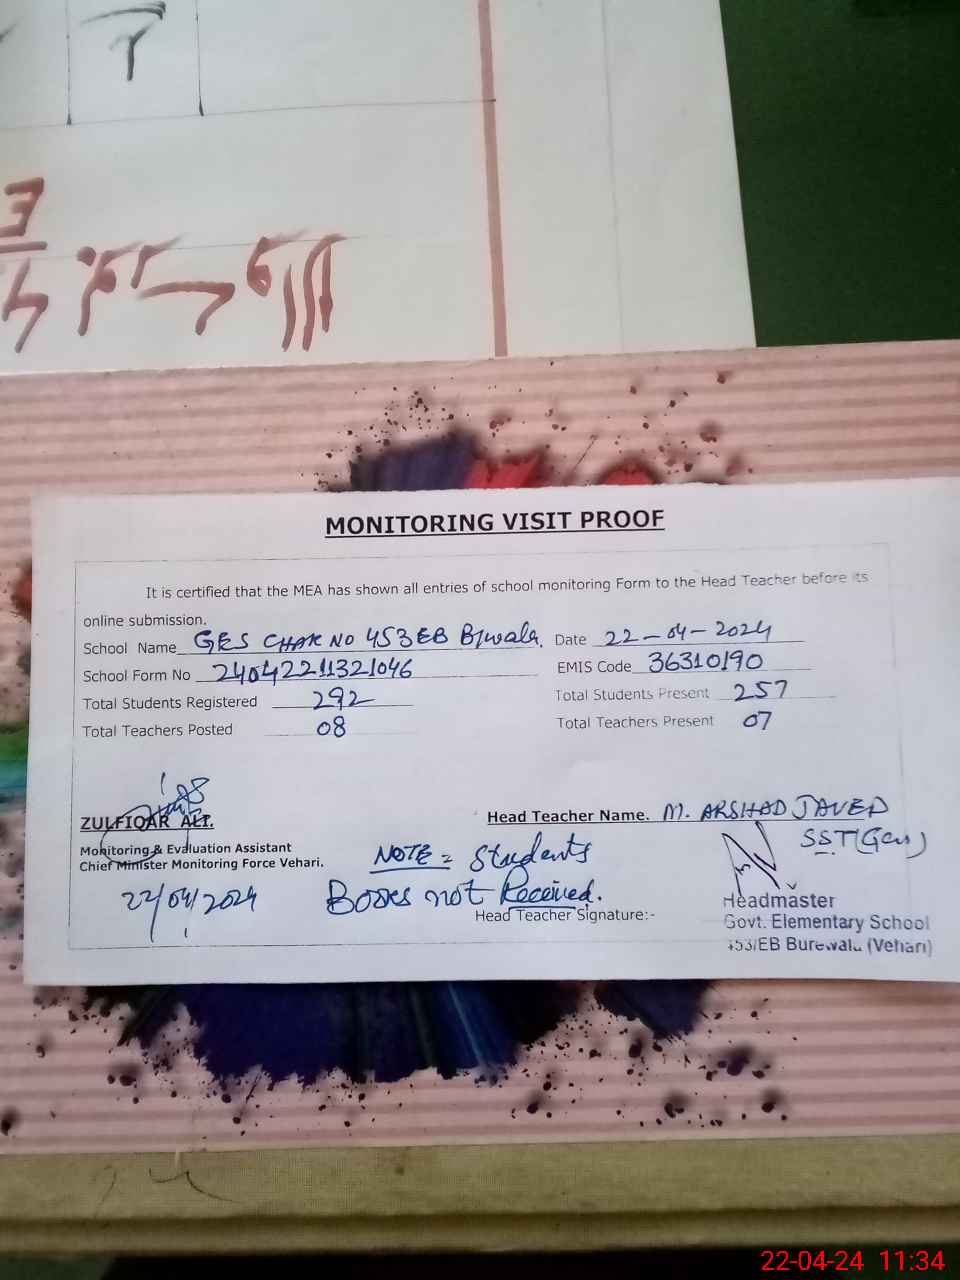 MONITORING VISIT PROOF
It is certified that the MEA has shown all entries of school monitoring Form to the Head Teacher before its
online submission.
School Name GES CHAK NO 453EB Bjwala. Date 22-04-2024
School Form No 24042211321046 EMIS Code 36310190
Total Students Registered 292 Total Students Present 257
Total Teachers Posted 08 Total Teachers Present 07
ZULFIQAR ALI. Head Teacher Name. M. ARSHAD JAVED
SST(Gen)
Monitoring & Evaluation Assistant
Chief Minister Monitoring Force Vehari.
NOTE = Students
Books not Received.
22/04/2024
Head Teacher Signature:-
Headmaster
Govt. Elementary School
453/EB Burewala (Vehari)
22-04-24 11:34